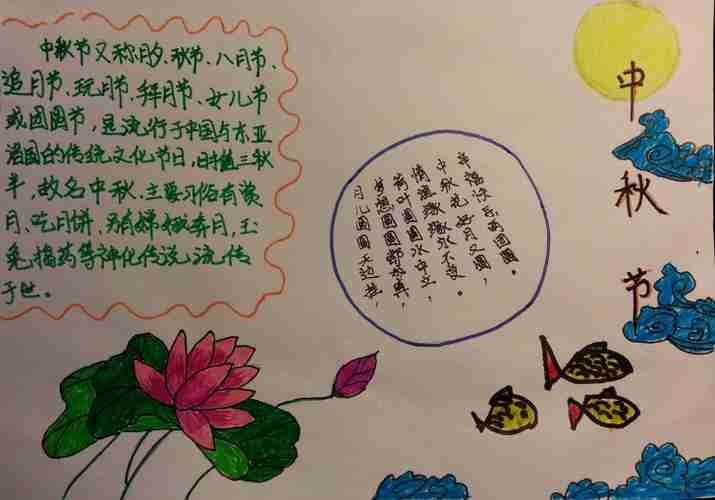 中秋节又称月夕、秋节、八月节、
追月节、玩月节、拜月节、女儿节
或团圆节，是流行于中国与东亚
诸国的传统文化节日，时值三秋
半，故名中秋。主要习俗有赏
月、吃月饼，另有嫦娥奔月，玉
兔捣药等神化传说流传
于世。
月儿圆圆天边挂，
梦想圆圆都成真，
荷叶圆圆水中立，
情永不变。
中秋花好月又圆，
幸福快乐两团圆。
中秋节